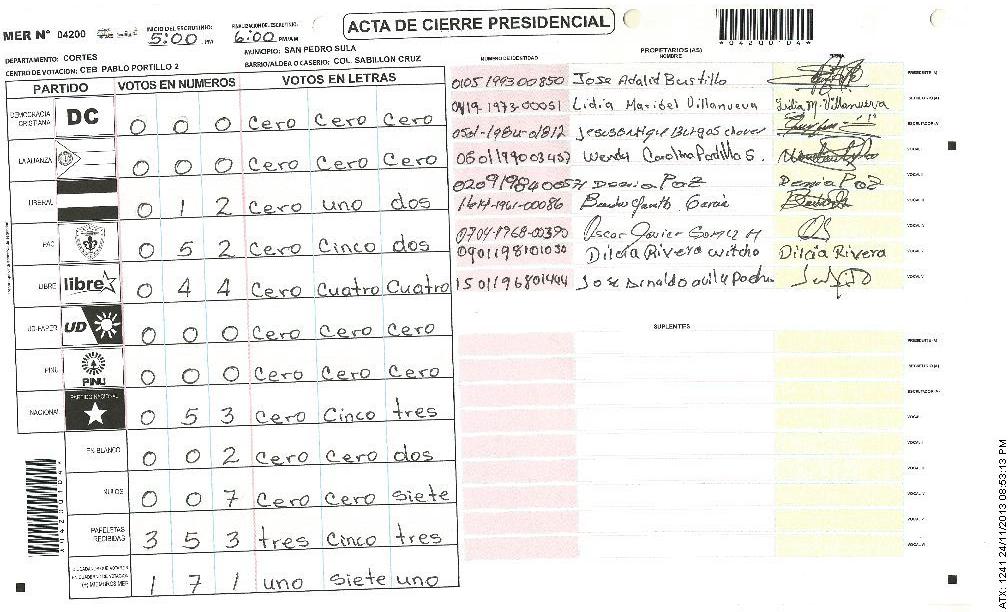 ACTA DE CIERRE PRESIDENCIAL
MER N° 04200
INICIO DEL ESCRUTINIO: 5:00 PM
FINALIZACION DEL ESCRUTINIO: 6:00 PM/AM
*04200104*
DEPARTAMENTO: CORTES
MUNICIPIO: SAN PEDRO SULA
CENTRO DE VOTACION: CEB PABLO PORTILLO 2
BARRIO/ALDEA O CASERIO: COL. SABILLON CRUZ
PARTIDO VOTOS EN NUMEROS VOTOS EN LETRAS
DEMOCRACIA CRISTIANA DC 0 0 0 cero cero cero
LA ALIANZA 0 0 0 cero cero cero
LIBERAL 0 1 2 cero uno dos
PAC 0 5 2 cero cinco dos
LIBRE libre 0 4 4 cero cuatro cuatro
UD-FAPER UD 0 0 0 cero cero cero
PINU PINU 0 0 0 cero cero cero
NACIONAL PARTIDO NACIONAL 0 5 3 cero cinco tres
EN BLANCO 0 0 2 cero cero dos
NULOS 0 0 7 cero cero siete
PAPELETAS RECIBIDAS 3 5 3 tres cinco tres
(+) MIEMBROS MER 1 7 1 uno siete uno
*04200104*
PROPIETARIOS (AS)
NUMERO DE IDENTIDAD NOMBRE FIRMA
0105 1993 00850 Jose Adalid Bustillo PRESIDENTE (A)
0419-1973-00051 Lidia Maribel Villanueva Lidia M. Villanueva SECRETARIO (A)
0501-1984-01812 ESCRUTADOR (A)
0501199003457 Wendy Carolina Portillo S. VOCAL I
Denia Paz Denia Paz VOCAL II
1961-00086 Garcia
0704-1968-00390 Oscar Javier Gomez M
0901198101030 Dilcia Rivera Witcho Dilcia Rivera
1501196801444 Jose
SUPLENTES
PRESIDENTE (A)
SECRETARIO (A)
ESCRUTADOR (A)
VOCAL I
VOCAL II
VOCAL III
VOCAL IV
VOCAL V
VOCAL VI
ATX: 1241 24/11/2013 08:53:13 PM